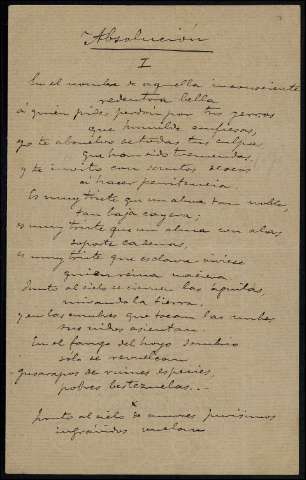 Absolución
I
En el nombre de aquella inconsciente
redentora bella
á quien pides perdón por tus yerros
que humilde confiesas,
yo te absuelvo de todas tus culpas
que han sido tremendas,
y te invito con santos deseos
á hacer penitencia.
Es muy triste que un alma tan noble,
tan baja cayera;
es muy triste que un alma con alas,
soporte cadenas,
es muy triste que esclava viviese
quien reina naciera
Junto al cielo se ciernen las águilas
mirando la tierra,
y en las cumbres que tocan las nubes
sus nidos asientan
En el fango del hoyo sombrío
solo se revuelcan
gusarapos de ruines especies,
pobres bestezuelas...
x
Junto al cielo de amores purísimos
ingrávidos vuelan